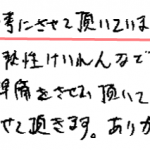 考にさせて頂いていま
秘性けいれんなで
早痛をさせて頂いて
せて頂きます。ありカ